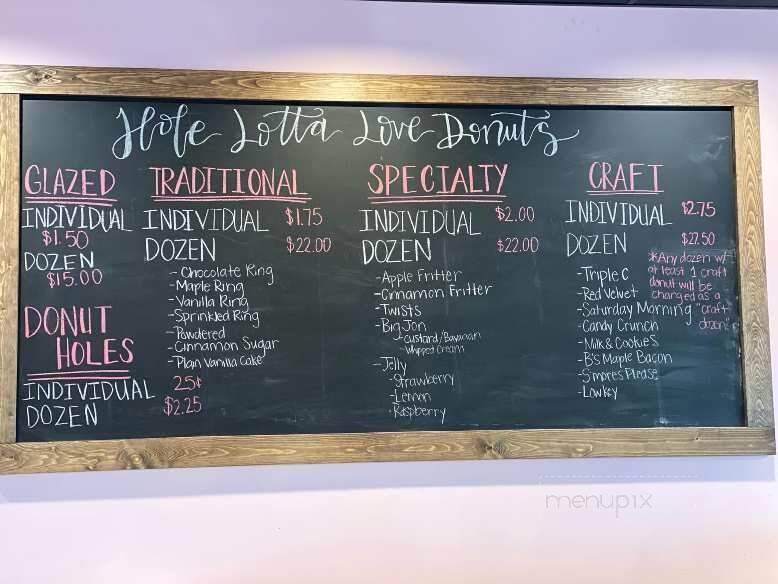 Hole Lotta Love Donuts
GLAZED
INDIVIDUAL
$1.50
DOZEN
$15.00
DONUT
HOLES
INDIVIDUAL 25¢
DOZEN $2.25
TRADITIONAL
INDIVIDUAL $1.75
DOZEN $22.00
- Chocolate Ring
- Maple Ring
- Vanilla Ring
- Sprinkled Ring
- Powdered
- Cinnamon Sugar
- Plain Vanilla Cake
SPECIALTY
INDIVIDUAL $2.00
DOZEN $22.00
- Apple Fritter
- Cinnamon Fritter
- Twists
- Big Jon
- Custard/Bavarian
- Whipped Cream
- Jelly
- Strawberry
- Lemon
- Raspberry
CRAFT
INDIVIDUAL $2.75
DOZEN $27.50
- Triple C
- Red Velvet
- Saturday Morning
- Candy Crunch
- Milk & Cookies
- B's Maple Bacon
- S'mores Please
- Lowkey
*Any dozen w/
at least 1 craft
donut will be
charged as a
"craft
dozen"
menupix